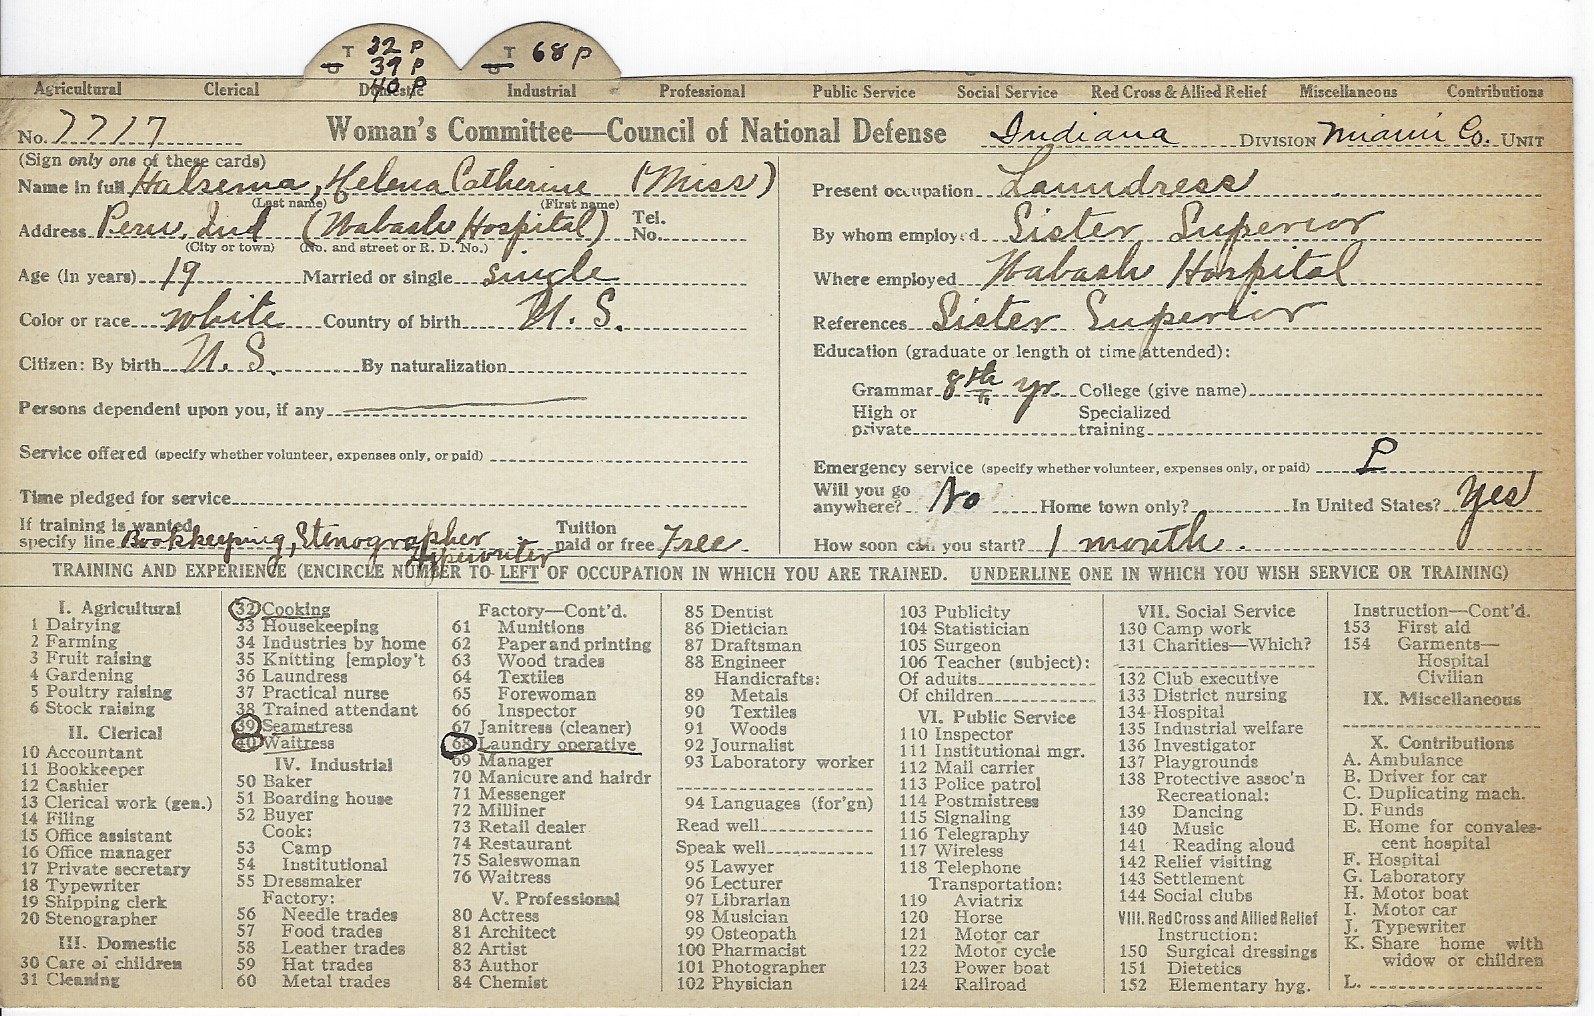 T 32 P
39 P
40 P
T 68 P
Agricultural Clerical Domestic Industrial Professional Public Service Social Service Red Cross & Allied Relief Miscellaneous Contributions
No. 7717 Woman's Committee—Council of National Defense Indiana DIVISION Miami Co. UNIT
(Sign only one of these cards)
Name in full Halsema, Helena Catherine (Miss)
(Last name) (First name)
Address Peru, Ind (Wabash Hospital) Tel. No.
(City or town) (No. and street or R. D. No.)
Age (in years) 19 Married or single single
Color or race white Country of birth U. S.
Citizen: By birth U. S. By naturalization
Persons dependent upon you, if any
Service offered (specify whether volunteer, expenses only, or paid)
Time pledged for service
If training is wanted
specify line Bookkeeping, Stenographer Typewriter Tuition paid or free Free
Present occupation Laundress
By whom employed Sister Superior
Where employed Wabash Hospital
References Sister Superior
Education (graduate or length of time attended):
Grammar 8th yr. College (give name)
High or private Specialized training
Emergency service (specify whether volunteer, expenses only, or paid) P
Will you go anywhere? No Home town only? In United States? Yes
How soon can you start? 1 month.
TRAINING AND EXPERIENCE (ENCIRCLE NUMBER TO LEFT OF OCCUPATION IN WHICH YOU ARE TRAINED. UNDERLINE ONE IN WHICH YOU WISH SERVICE OR TRAINING)
I. Agricultural
1 Dairying
2 Farming
3 Fruit raising
4 Gardening
5 Poultry raising
6 Stock raising
II. Clerical
10 Accountant
11 Bookkeeper
12 Cashier
13 Clerical work (gen.)
14 Filing
15 Office assistant
16 Office manager
17 Private secretary
18 Typewriter
19 Shipping clerk
20 Stenographer
III. Domestic
30 Care of children
31 Cleaning
32 Cooking
33 Housekeeping
34 Industries by home
35 Knitting [employ't
36 Laundress
37 Practical nurse
38 Trained attendant
39 Seamstress
40 Waitress
IV. Industrial
50 Baker
51 Boarding house
52 Buyer
Cook:
53 Camp
54 Institutional
55 Dressmaker
Factory:
56 Needle trades
57 Food trades
58 Leather trades
59 Hat trades
60 Metal trades
Factory—Cont'd.
61 Munitions
62 Paper and printing
63 Wood trades
64 Textiles
65 Forewoman
66 Inspector
67 Janitress (cleaner)
68 Laundry operative
69 Manager
70 Manicure and hairdr
71 Messenger
72 Milliner
73 Retail dealer
74 Restaurant
75 Saleswoman
76 Waitress
V. Professional
80 Actress
81 Architect
82 Artist
83 Author
84 Chemist
85 Dentist
86 Dietician
87 Draftsman
88 Engineer
Handicrafts:
89 Metals
90 Textiles
91 Woods
92 Journalist
93 Laboratory worker
94 Languages (for'gn)
Read well
Speak well
95 Lawyer
96 Lecturer
97 Librarian
98 Musician
99 Osteopath
100 Pharmacist
101 Photographer
102 Physician
103 Publicity
104 Statistician
105 Surgeon
106 Teacher (subject):
Of adults
Of children
VI. Public Service
110 Inspector
111 Institutional mgr.
112 Mail carrier
113 Police patrol
114 Postmistress
115 Signaling
116 Telegraphy
117 Wireless
118 Telephone
Transportation:
119 Aviatrix
120 Horse
121 Motor car
122 Motor cycle
123 Power boat
124 Railroad
VII. Social Service
130 Camp work
131 Charities—Which?
132 Club executive
133 District nursing
134 Hospital
135 Industrial welfare
136 Investigator
137 Playgrounds
138 Protective assoc'n
Recreational:
139 Dancing
140 Music
141 Reading aloud
142 Relief visiting
143 Settlement
144 Social clubs
VIII. Red Cross and Allied Relief
Instruction:
150 Surgical dressings
151 Dietetics
152 Elementary hyg.
Instruction—Cont'd.
153 First aid
154 Garments—
Hospital
Civilian
IX. Miscellaneous
X. Contributions
A. Ambulance
B. Driver for car
C. Duplicating mach.
D. Funds
E. Home for convales-
cent hospital
F. Hospital
G. Laboratory
H. Motor boat
I. Motor car
J. Typewriter
K. Share home with
widow or children
L.